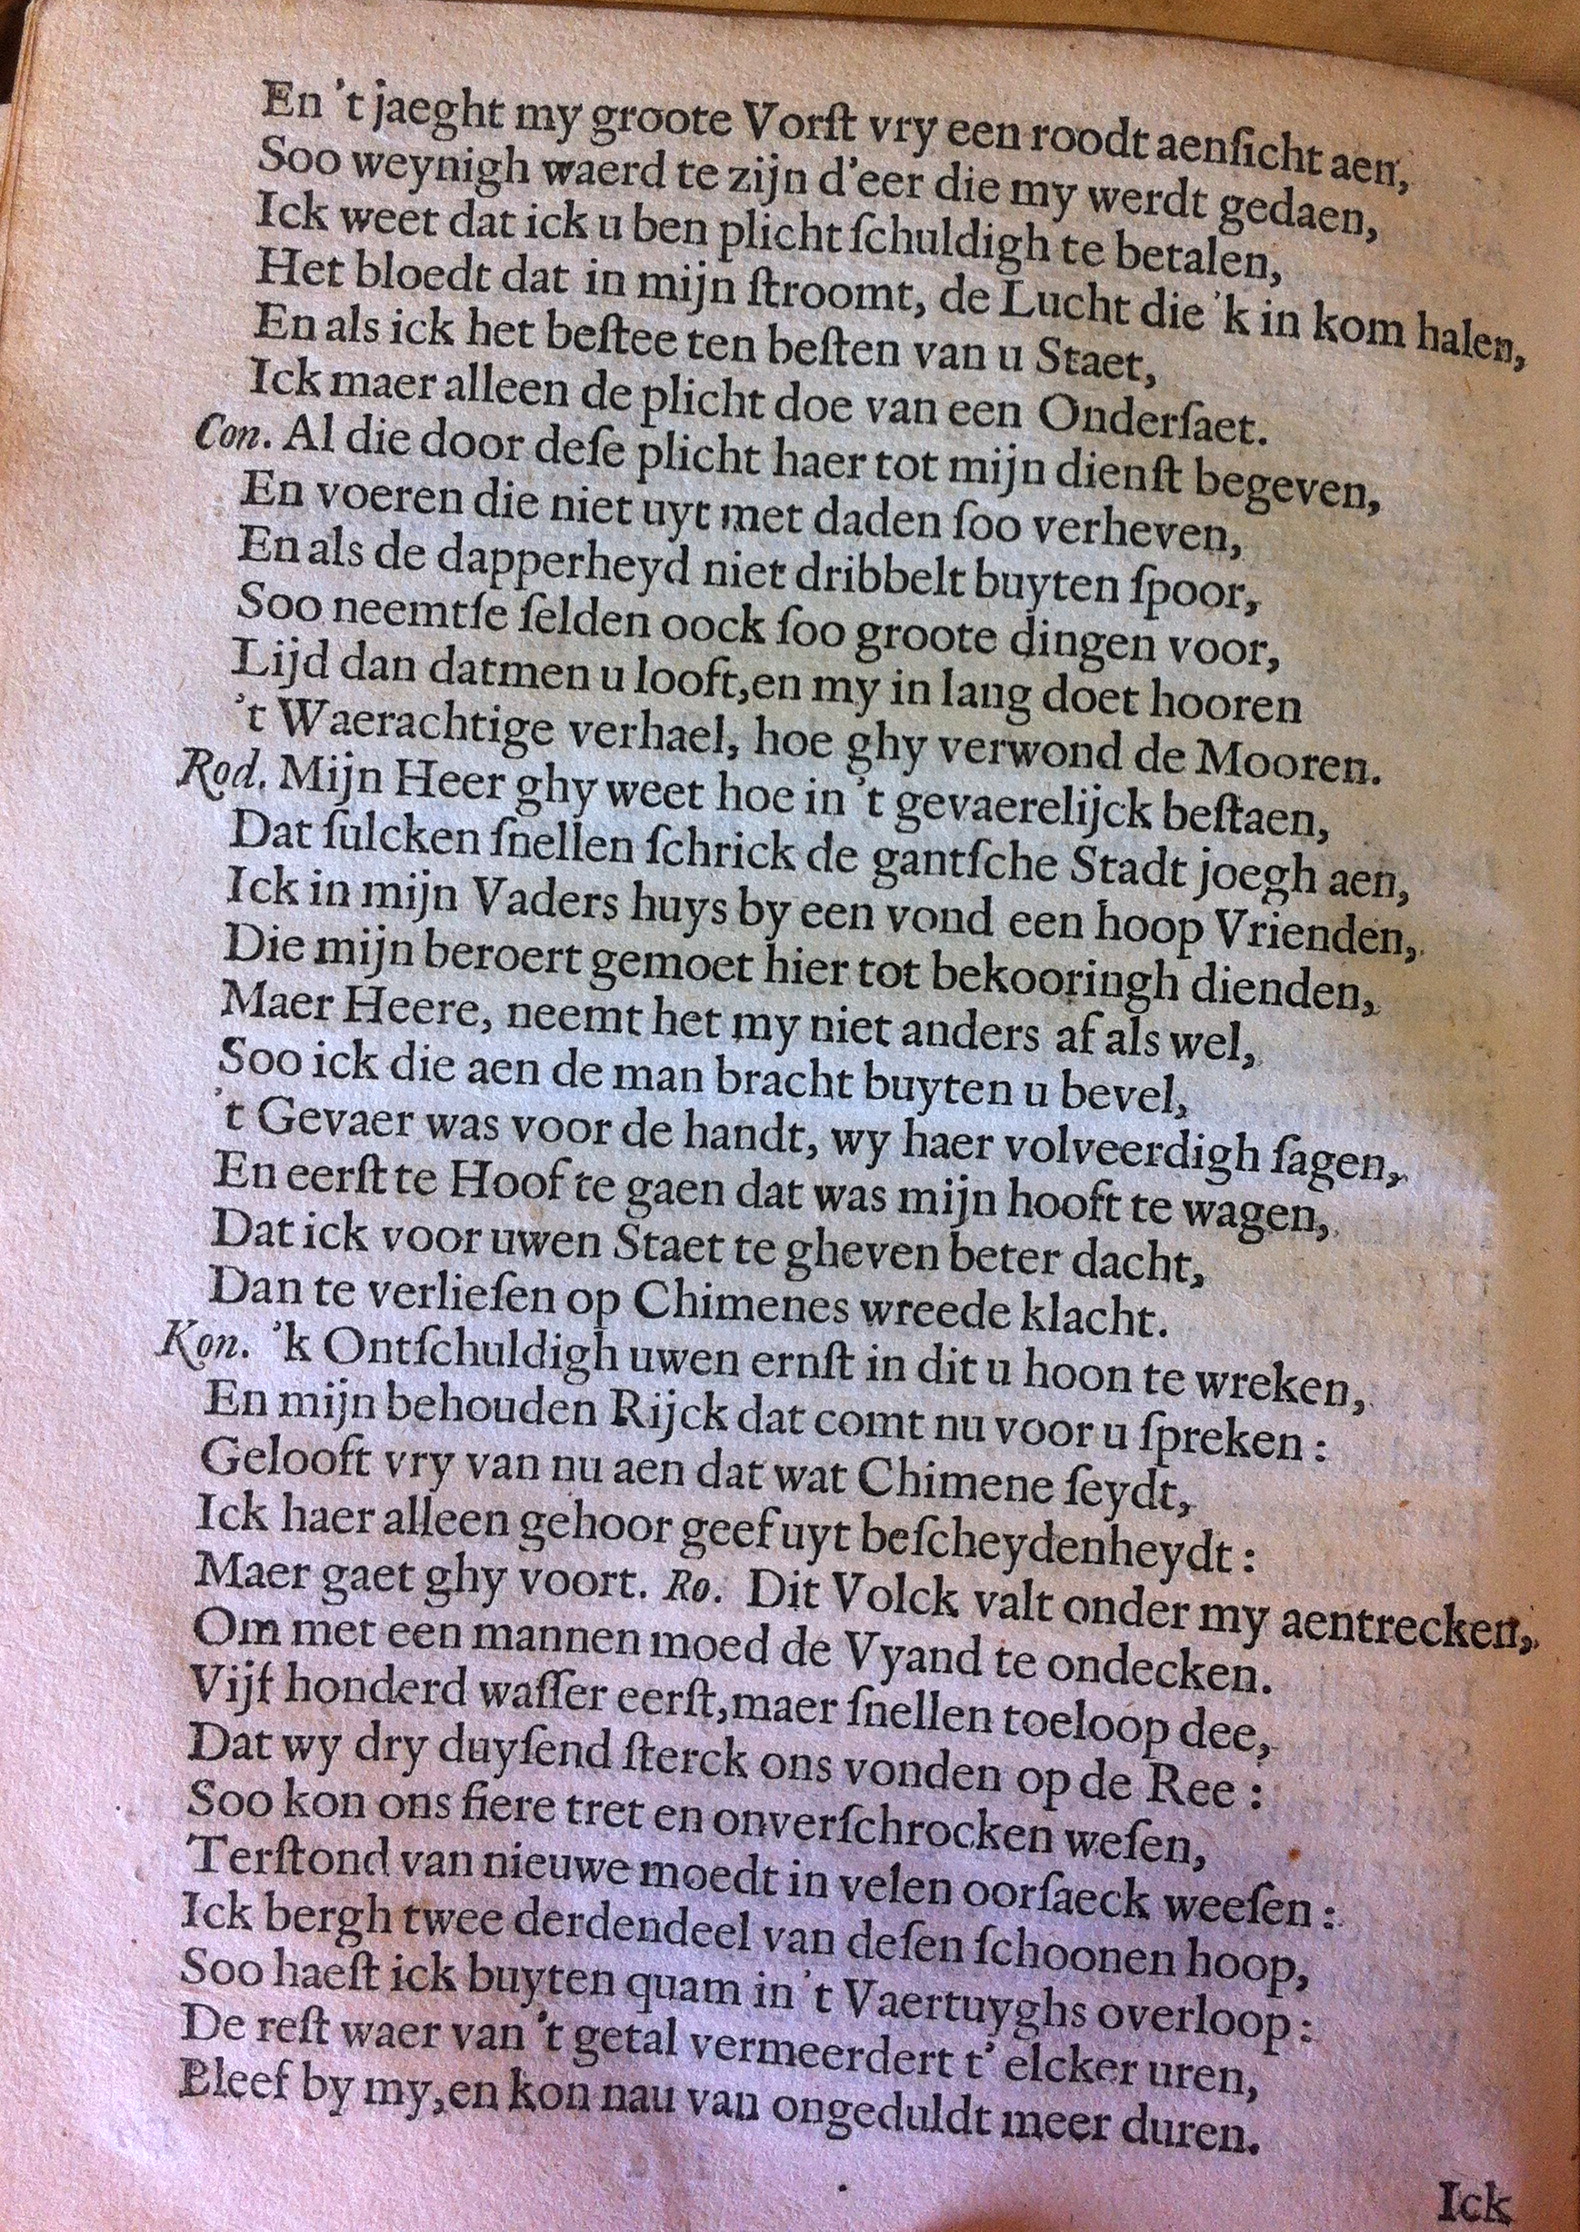 En 't jaeght my groote Vorſt vry een roodt aenſicht aen,
Soo weynigh waerd te zijn d'eer die my werdt gedaen,
Ick weet dat ick u ben plicht ſchuldigh te betalen,
Het bloedt dat in mijn ſtroomt, de Lucht die 'k in kom halen,
En als ick het beſtee ten beſten van u Staet,
Ick maer alleen de plicht doe van een Onderſaet.
Con. Al die door deſe plicht haer tot mijn dienſt begeven,
En voeren die niet uyt met daden ſoo verheven,
En als de dapperheyd niet dribbelt buyten ſpoor,
Soo neemtſe ſelden oock ſoo groote dingen voor,
Lijd dan datmen u looft,en my in lang doet hooren
't Waerachtige verhael, hoe ghy verwond de Mooren.
Rod. Mijn Heer ghy weet hoe in 't gevaerelijck beſtaen,
Dat ſulcken ſnellen ſchrick de gantſche Stadt joegh aen,
Ick in mijn Vaders huys by een vond een hoop Vrienden,
Die mijn beroert gemoet hier tot bekooringh dienden,
Maer Heere, neemt het my niet anders af als wel,
Soo ick die aen de man bracht buyten u bevel,
't Gevaer was voor de handt, wy haer volveerdigh ſagen,
En eerſt te Hoof te gaen dat was mijn hooft te wagen,
Dat ick voor uwen Staet te gheven beter dacht,
Dan te verlieſen op Chimenes wreede klacht.
Kon. 'k Ontſchuldigh uwen ernſt in dit u hoon te wreken,
En mijn behouden Rijck dat comt nu voor u ſpreken :
Gelooft vry van nu aen dat wat Chimene ſeydt,
Ick haer alleen gehoor geef uyt beſcheydenheydt :
Maer gaet ghy voort. Ro. Dit Volck valt onder my aentrecken,
Om met een mannen moed de Vyand te ondecken.
Vijf honderd waſſer eerſt,maer ſnellen toeloop dee,
Dat wy dry duyſend ſterck ons vonden op de Ree :
Soo kon ons fiere tret en onverſchrocken weſen,
Terſtond van nieuwe moedt in velen oorſaeck weeſen :
Ick bergh twee derdendeel van deſen ſchoonen hoop,
Soo haeſt ick buyten quam in 't Vaertuyghs overloop :
De reſt waer van 't getal vermeerdert t' elcker uren,
Bleef by my,en kon nau van ongeduldt meer duren.
Ick